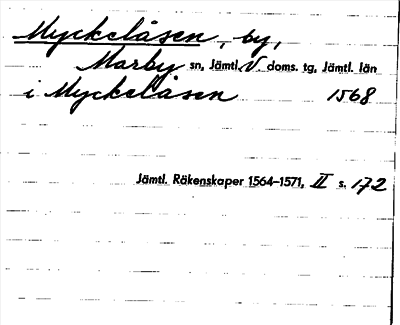 Myckelåsen, by,
Marby sn, Jämtl. V. doms. tg, Jämtl. län
i Myckelåsen 1568
Jämtl. Räkenskaper 1564–1571, II s. 172